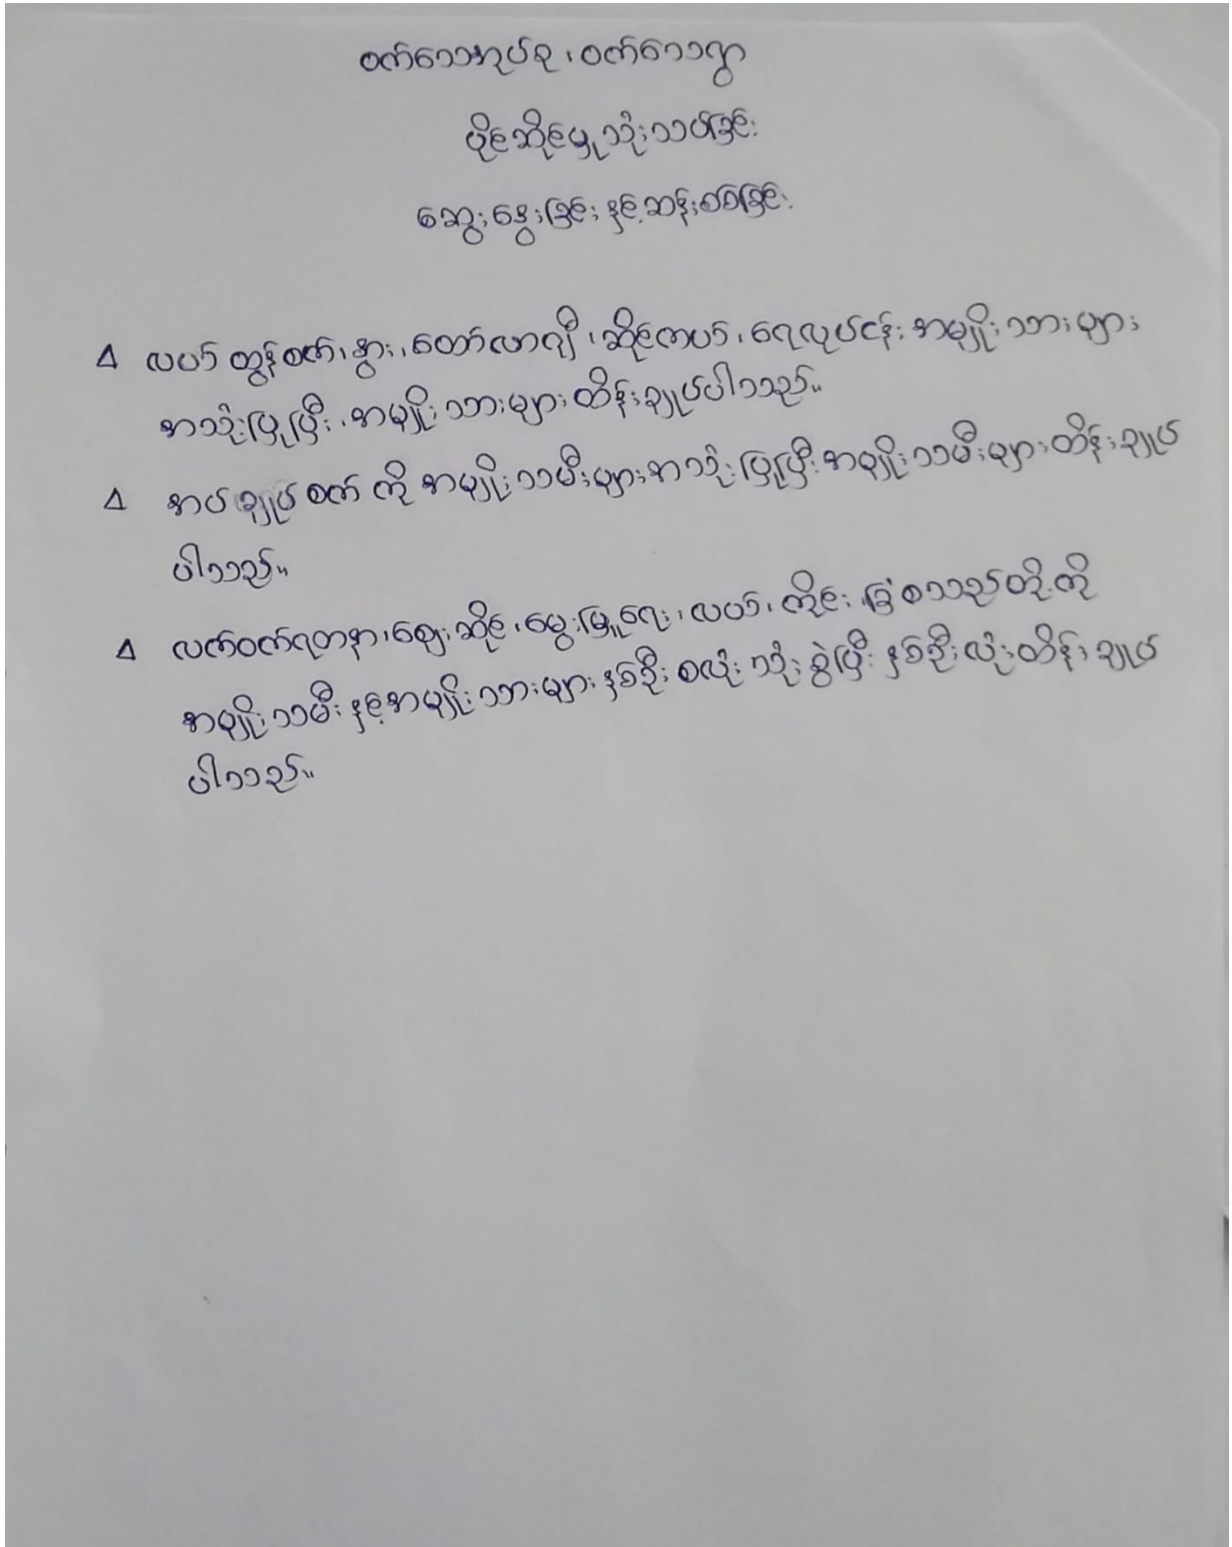 ဝက်သေအုပ်စု ၊ ဝက်သေရွာ
ပိုင်ဆိုင်မှု သုံးသပ်ခြင်း
ဆွေးနွေးခြင်း နှင့် ဆန်းစစ်ခြင်း
∆ လယ် ထွန် စက် ၊ နွား ၊ တော်လာဂျီ ၊ ဆိုင်ကယ် ၊ ရေလုပ်ငန်း အမျိုးသားများ
အသုံးပြုပြီး ၊ အမျိုးသားများ ထိန်းချုပ်ပါသည်။
∆ အပ်ချုပ်စက် ကို အမျိုးသမီးများ အသုံးပြုပြီး အမျိုးသမီးများ ထိန်းချုပ်
ပါသည်။
∆ လက်ဝတ်ရတနာ ၊ ဈေးဆိုင် ၊ မွေးမြူရေး ၊ လယ် ၊ ကိုင်း ၊ ခြံ စသည်တို့ကို
အမျိုးသမီး နှင့် အမျိုးသားများ နှစ်ဦး စလုံး သုံးစွဲပြီး နှစ်ဦးလုံး ထိန်းချုပ်
ပါသည်။